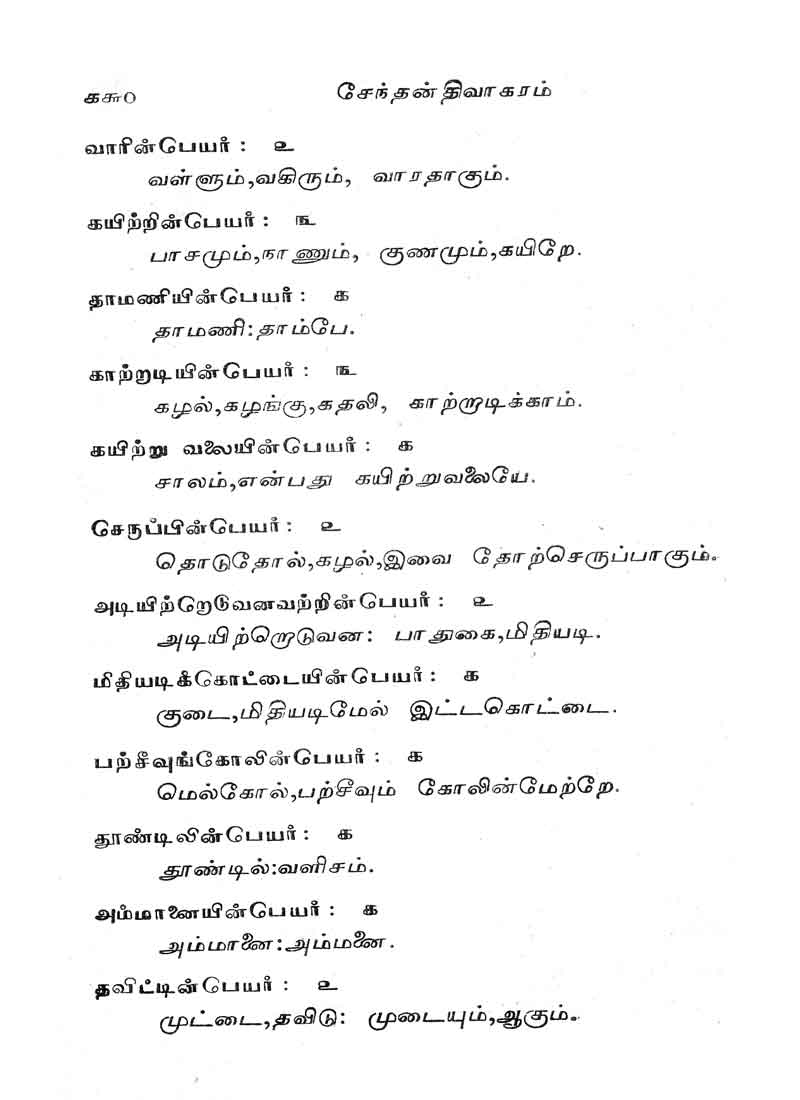 க௬0 சேந்தன்திவாகரம்
வாரின்பெயர் : ௨
வள்ளும்,வகிரும், வாரதாகும்.
கயிற்றின்பெயர் : ௩
பாசமும்,நாணும், குணமும்,கயிறே.
தாமணியின்பெயர் : ௧
தாமணி:தாம்பே.
காற்றடியின்பெயர் : ௩
கழல்,கழங்கு,கதலி, காற்றூடிக்காம்.
கயிற்று வலையின்பெயர் : ௧
சாலம்,என்பது கயிற்றுவலையே.
சேருப்பின்பெயர் : ௨
தொடுதோல்,கழல்,இவை தோற்செருப்பாகும்.
அடியிற்றெடுவனவற்றின்பெயர் : ௨
அடியிற்றொடுவன: பாதுகை,மிதியடி.
மிதியடிக்கோட்டையின்பெயர் : ௧
குடை,மிதியடிமேல் இட்டகொட்டை.
பற்சீவுங்கோலின்பெயர் : ௧
மெல்கோல்,பற்சீவும் கோலின்மேற்றே.
தூண்டிலின்பெயர் : ௧
தூண்டில்:வளிசம்.
அம்மானையின்பெயர் : ௧
அம்மானை:அம்மனை.
தவிட்டின்பெயர் : ௨
முட்டை,தவிடு: முடையும்,ஆகும்.